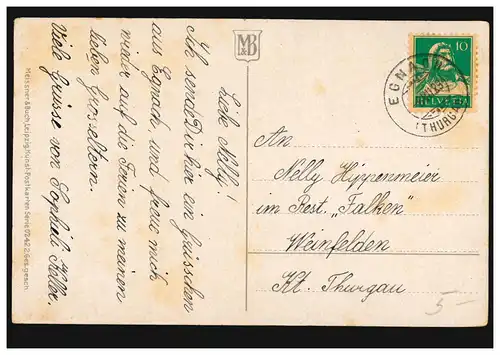 Liebe Nelly!
Ich sende Dir hier ein Grüsschen
aus Egnach, und freue mich
wieder auf die Ferien zu meinen
lieben Grosseltern.
Viele Grüsse von Sophieli Keller
Meissner & Buch, Leipzig, Kunst-Postkarten Serie 2242. Ges. gesch.
M&B
10
HELVETIA
EGNACH
(THURGAU)
An
Nelly Hippenmeier
im Rest. "Falken"
Weinfelden
Kt. Thurgau
5-